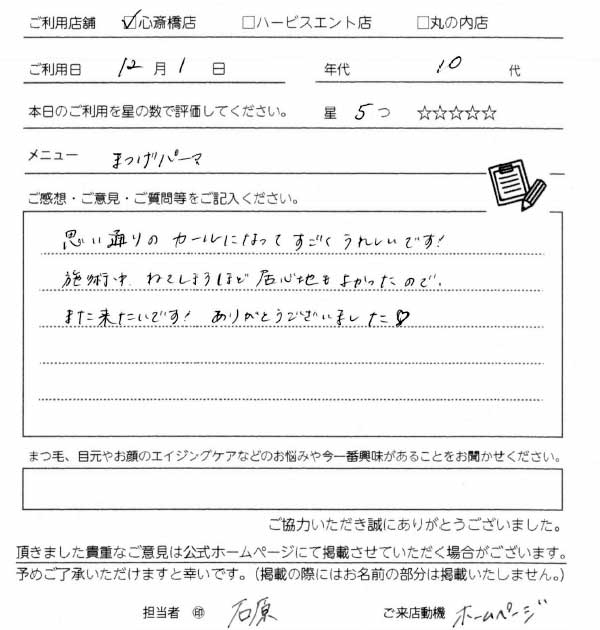 ご利用店舗 ☑心斎橋店 □ハービスエント店 □丸の内店
ご利用日 12月1日 年代 10代
本日のご利用を星の数で評価してください。 星 5つ ☆☆☆☆☆
メニュー まつげパーマ
ご感想・ご意見・ご質問等をご記入ください。
思い通りのカールになってすごくうれしいです!
施術中、ねてしまうほど居心地もよかったので、
また来たいです! ありがとうございました♡
まつ毛、目元やお顔のエイジングケアなどのお悩みや今一番興味があることをお聞かせください。
ご協力いただき誠にありがとうございました。
頂きました貴重なご意見は公式ホームページにて掲載させていただく場合がございます。
予めご了承いただけますと幸いです。(掲載の際にはお名前の部分は掲載いたしません。)
担当者 ㊞ 石原 ご来店動機 ホームページ